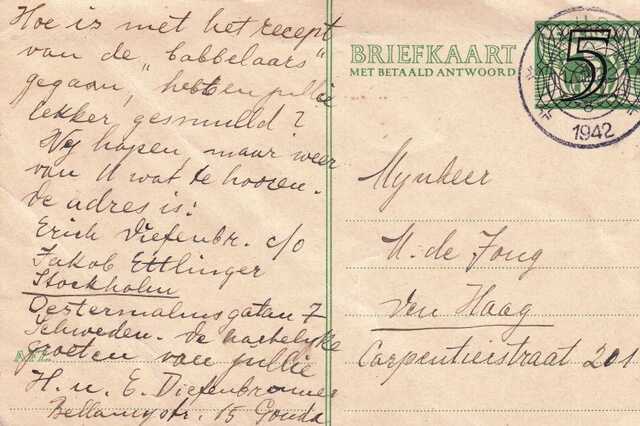 Hoe is met het recept
van de „babbelaars"
gegaan, hebben jullie
lekker gesmuld?
Wij hopen, maar weer
van U wat te hooren.
de adres is:
Erich Diefenbr. c/o
Jakob Ettlinger
Stockholm
Oestermalmsgatan 7
Schweden. de hartelijke
groeten van jullie
H. u. E. Diefenbronner
Bellamystr. 15 Gouda
AFZ.
BRIEFKAART
MET BETAALD ANTWOORD
5
1942
Mynheer
de Jong
Den Haag
Carpentierstraat 201